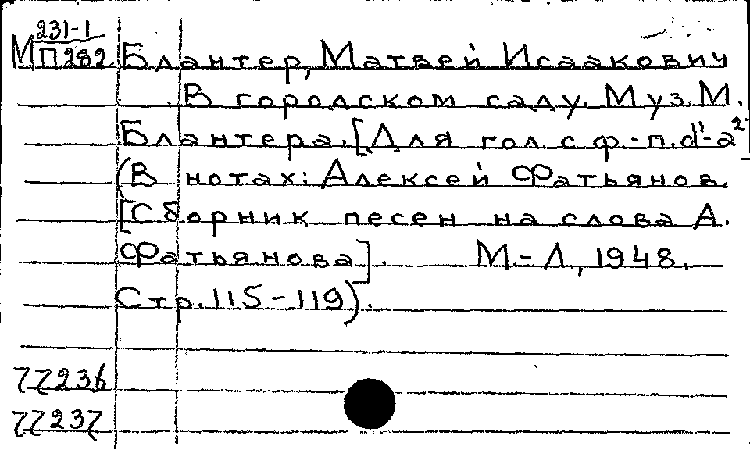 М 231-1
П 282 Блантер, Матвей Исаакович
В городском саду. Муз. М.
Блантера. [Для гол. с ф.-п. d¹-a²
(В нотах: Алексей Фатьянов.
[Сборник песен на слова А.
Фатьянова]. М.-Л., 1948.
Стр. 115-119).
77236
77237